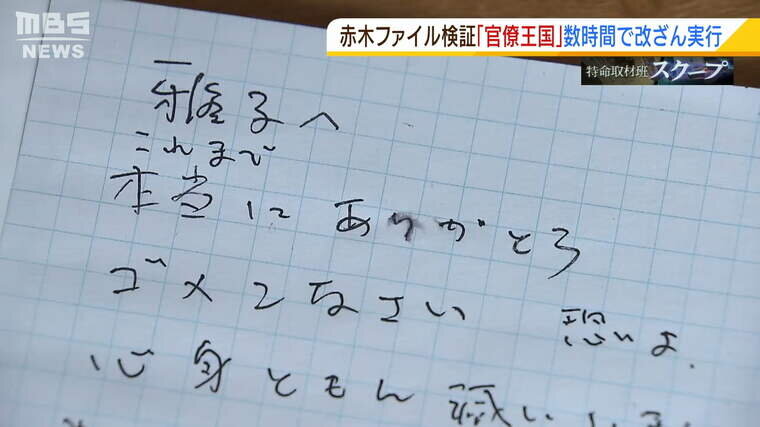 MBS
NEWS
赤木ファイル検証「官僚王国」数時間で改ざん実行
特命取材班 スクープ
雅子へ
これまで
本当にありがとう
ゴメンなさい 恐いよ、
心身ともに